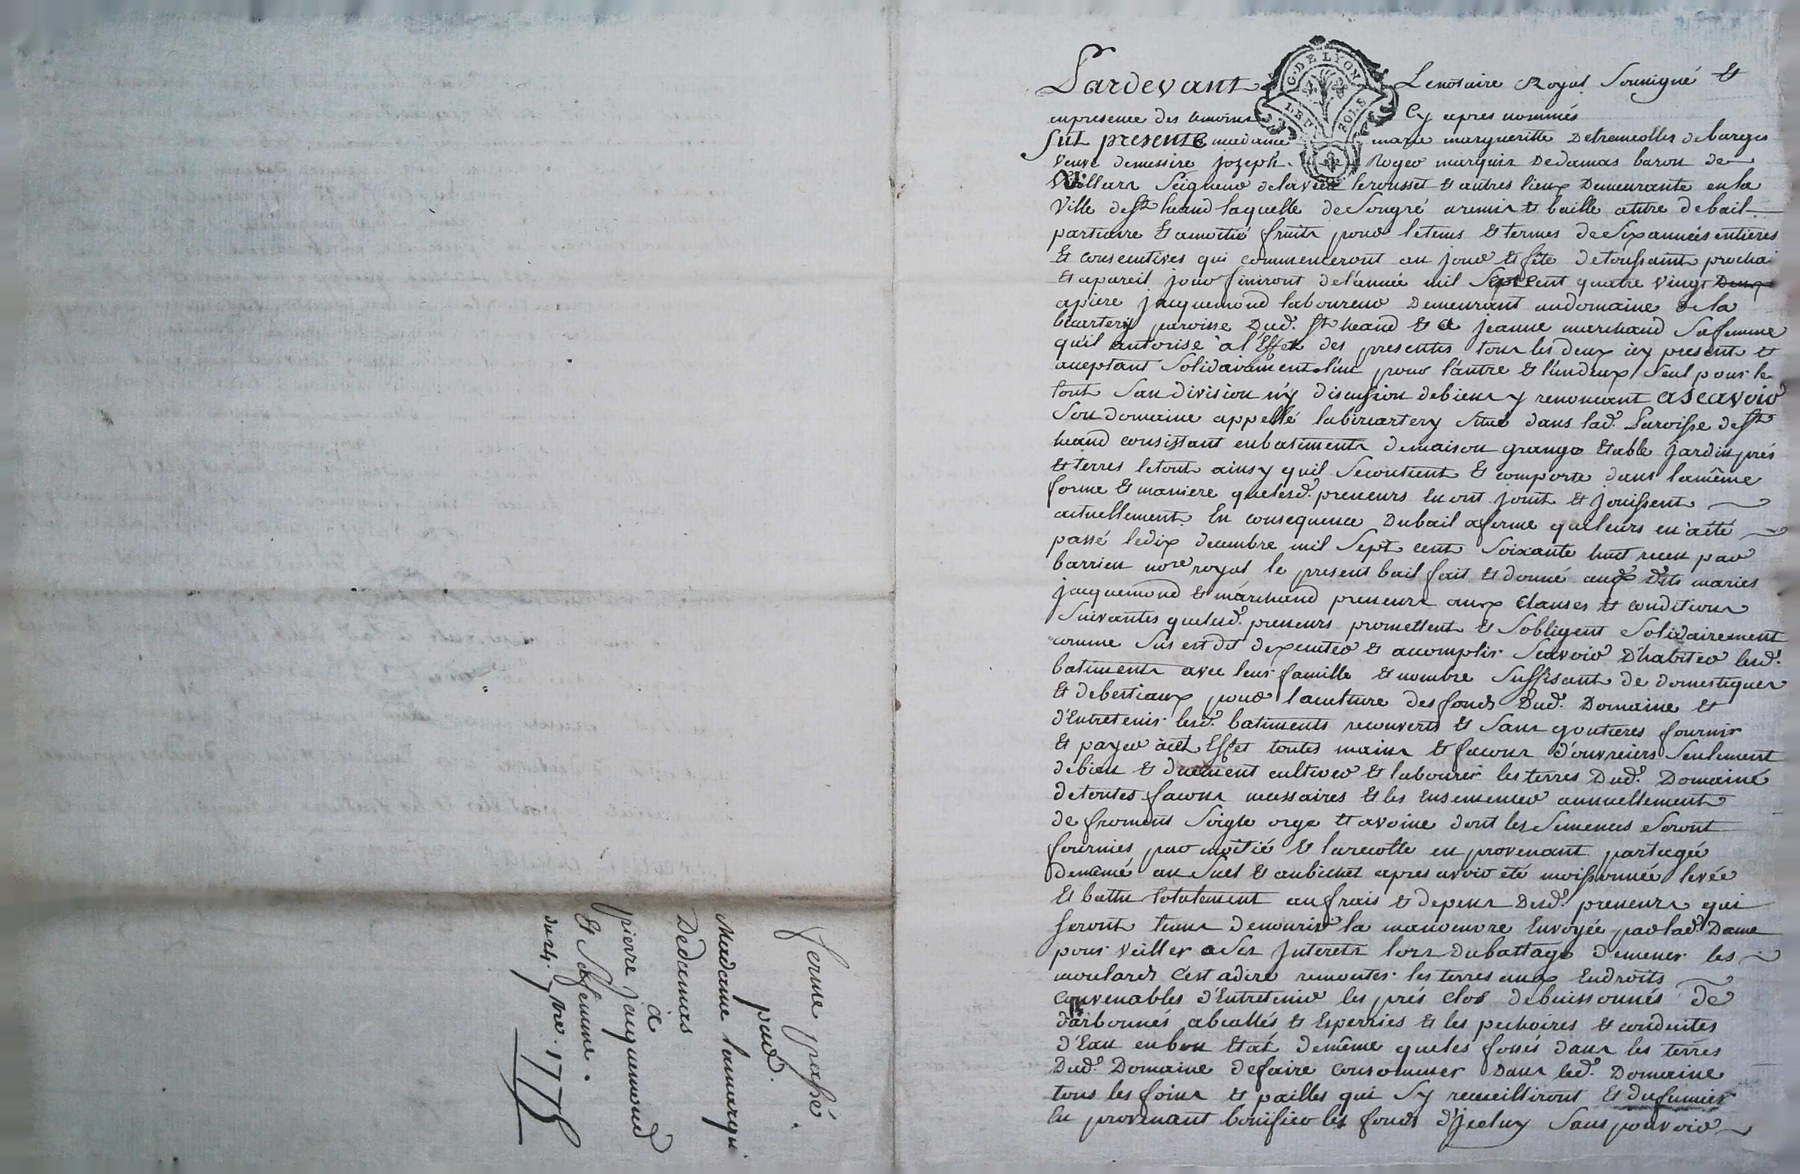 Pardevant Le notaire Royal Soussigné Et
G. DE LYON
LEU. 2 SOLS
enpresence des temoins Cy apres nommés
fut presente madame marie margueritte Detremeolles debarges
veuve demessire jozeph Roger marquis Dedamas baron de
Villars Seigneur delavere lerousset & autres lieux Demeurante enla
Ville dest heand laquelle deSongré aremis & baillé atitre debail
partiaire & amoitié fruits pour letems & termes deSix années entieres
& consecutives qui commenceront au jour & fête detoussaint prochai
& apareil jour finiront delannée mil Sept Cent quatre vingt Deux
apiere jacquemond laboureur Demeurant audomaine de la
paroisse Dud. st heand & a jeanne marchand Safemme
quil autorise a l'Effet des presentes tous les deux icy present &
aceptant Solidairement l'un pour l'autre & l'undeux Seul pour le
tout San division n'y discusion debiens y renoncant ascavoir
Son domaine appellé labicartery Situé dans lad. Paroisse dest
heand consistant enbatiments demaison grange Etable jardin prés
& terres letout ainsy quil Secontient & comporte dans lamême
forme & maniere quelesd. preneurs en ont joint & jouissent
actuellement En consequence Dubail aferme quileurs en aété
passé ledix decembre mil Sept cent Soixante huit recu par
barrieu nore royal le present bail fait & donné aux dits mariés
jacquemond & marchand preneurs aux Clauses & conditions
Suivantes quelesd. preneurs promettent & Sobligent Solidairement
comme Sus est dit dexecuter & accomplir Scavoir D'habiter lesd.
batiments avec leur famille & nombre Suffisant de domestiques
& debestiaux pour laculture des fonds Dud. Domaine &
d'Entretenir lesd. batiments recouverts & Sans goutieres fournir
& payer acet Effet toutes mains & facons d'ouvreiers Seulement
debien & duement cultiver & labourer les terres Dud. Domaine
detoutes facons necessaires & les Ensemencer annuellement
de froment Seigle orge & avoine dont les Semences Seront
fournies par moitié & larecolte en provenant partagée
Demême au Suel & aubichet apres avoir été moissonnée levée
& battu totalement aufrais & depens Dud. preneurs qui
Seront tenus denourir la manoeuvre Envoyée par lad. Dame
pour veiller a Ses Interets lors Dubattage demener les
moulards c'est adire remonter les terres aux Endroits
Convenables d'Entretenir les prés clos debuissonnés de
darbonnés & les pechoires & conduites
d'Eau enbon Etat demême queles fossés dans les terres
Dud. Domaine defaire consommer Dans led. Domaine
tous les foins & pailles qui Sy recueilliront & dufumier
En provenant bonifier les fonds d'Iceluy Sans pouvoir
ferme passé
par
Madame lamarqui
Dedamas
a
pierre jacquemond
& Safemme.
du 24. 7bre. 1775